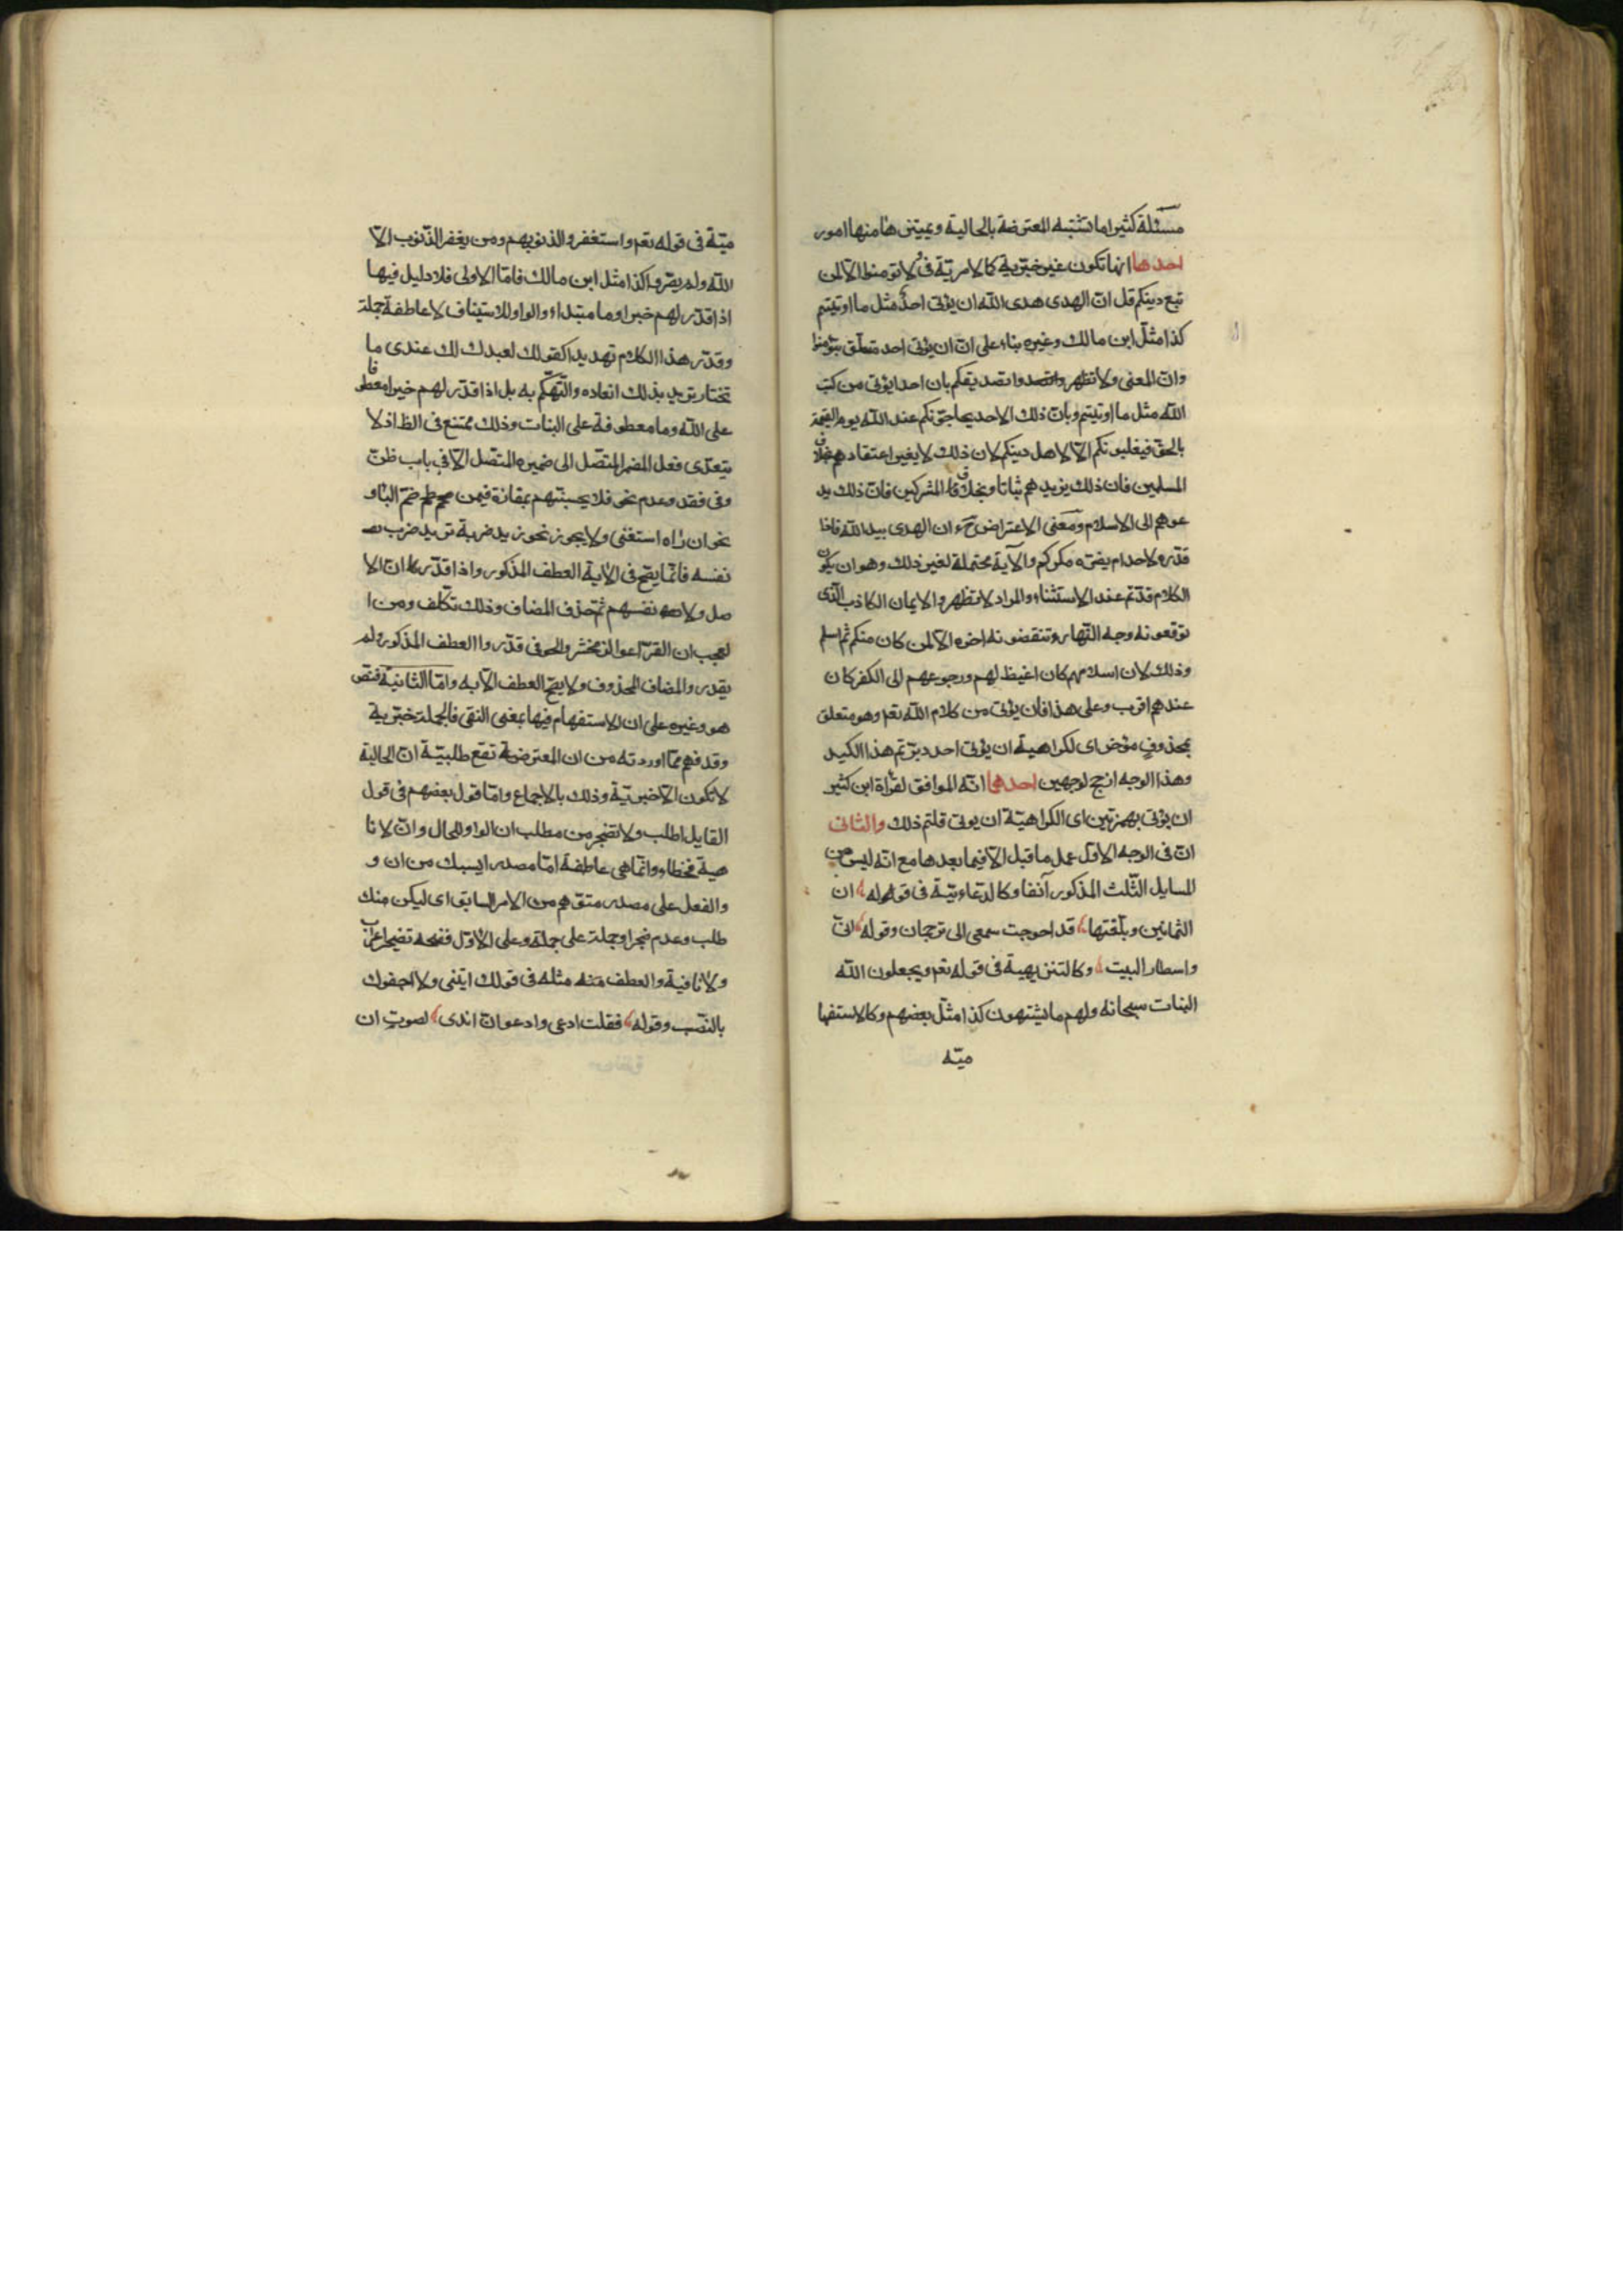 مسئلة كثيرا ما تشتبه المعترضة بالحالية ويميزها منها امور
احدها انها تكون غير خبرية كالامرية في ولا تومنوا الا لمن
تبع دينكم قل ان الهدى هدى الله ان يؤتى احد مثل ما اوتيتم
كذا مثل ابن مالك وغيره بناء على ان ان يؤتى احد متعلق بتؤمنوا
وان المعنى ولا تظهروا تصديقكم بان احدا يؤتى من كتب
الله مثل ما اوتيتم وبان ذلك الاحد يحاجونكم عند الله يوم القيمة
بالحق فيغلبونكم الا لاهل دينكم لان ذلك لا يغير اعتقادهم بخلاف
المسلمين فان ذلك يزيدهم ثباتا وبخلاف المشركين فان ذلك يد
عوهم الى الاسلام ومعنى الاعتراض ح ان الهدى بيد الله فاذا
قدره لاحد لم يضره مكركم والآية محتملة لغير ذلك وهو ان يكون
الكلام قد تم عند الاستثناء والمراد لا تظهروا الايمان الكاذب الذى
توقعونه وجه النهار وتنقضونه اخره الا لمن كان منكم ثم اسلم
وذلك لان اسلامهم كان اغيظ لهم ورجوعهم الى الكفر كان
عندهم اقرب وعلى هذا فان يؤتى من كلام الله تعم وهو متعلق
بمحذوف مؤخر اى لكراهية ان يؤتى احد دبرتم هذا الكيد
وهذا الوجه ارجح لوجهين احدهما انه الموافق لقراة ابن كثير
ان يؤتى بهمزتين اى الكراهية ان يوتى قلتم ذلك والثانى
ان فى الوجه الاول عمل ما قبل الا فيما بعدها مع انه ليس من
المسايل الثلث المذكور آنفا وكالدعاءية فى قوله ان
الثمانين وبلغتها قد احوجت سمعى الى ترجمان وقوله انى
واسطار البيت وكالتنزيهية فى قوله تعم ويجعلون الله
البنات سبحانه ولهم ما يشتهون كذا مثل بعضهم وكالاستفها
ميه
ميّة فى قوله تعم واستغفروا لذنوبهم ومن يغفر الذنوب الا
الله ولم يصروا كذا مثل ابن مالك فاما الاولى فلا دليل فيها
اذا قدر لهم خبرا وما مبتداء والواو للاستيناف لا عاطفة جملة
وقدر هذا الكلام تهديدا كقولك لعبدك لك عندى ما
تختار تريد بذلك ابعاده والتهكم به بل اذا قدر لهم خيرا معطوفا
على الله وما معطوفة على البنات وذلك ممتنع فى الظ اذ لا
يتعدى فعل المضمر المتصل الى ضميره المتصل الا فى باب ظن
وفى فقد وعدم نحو فلا يحسبنهم بمفازة فيمن ضم الباء و
نحو ان راه استغنى ولا يجوز نحو زيد ضربه تريد ضرب
نفسه فانما يصح فى الاية العطف المذكور واذا قدر ان الا
صل ولا نفسهم ثم حذف المضاف وذلك تكلف ومن ا
لعجب ان الفرا والزمخشر والحوفى قدروا العطف المذكور ولم
يقدر والمضاف المحذوف ولا يصح العطف الا به واما الثانية فنص
هو وغيره على ان الاستفهام فيها بمعنى النفى فالجملة خبرية
وقد فهم مما اوردته من ان المعترضة تقع طلبية ان الحالية
لا تكون الا خبرية وذلك بالاجماع واما قول بعضهم فى قول
القايل اطلب ولا تضجر من مطلب ان الواو للحال وان لا نا
هية فخطاء وانما هى عاطفة اما مصدر ايسبك من ان و
والفعل على مصدر متوهم من الامر السابق اى ليكن منك
طلب وعدم ضجر او جملة على جملة وعلى الاول ففتحه تضجر اعراب
ولا نافية والعطف مثله فى قولك ايتنى ولا اجفوك
بالنصب وقوله فقلت ادعى وادعو ان اندى لصوت ان